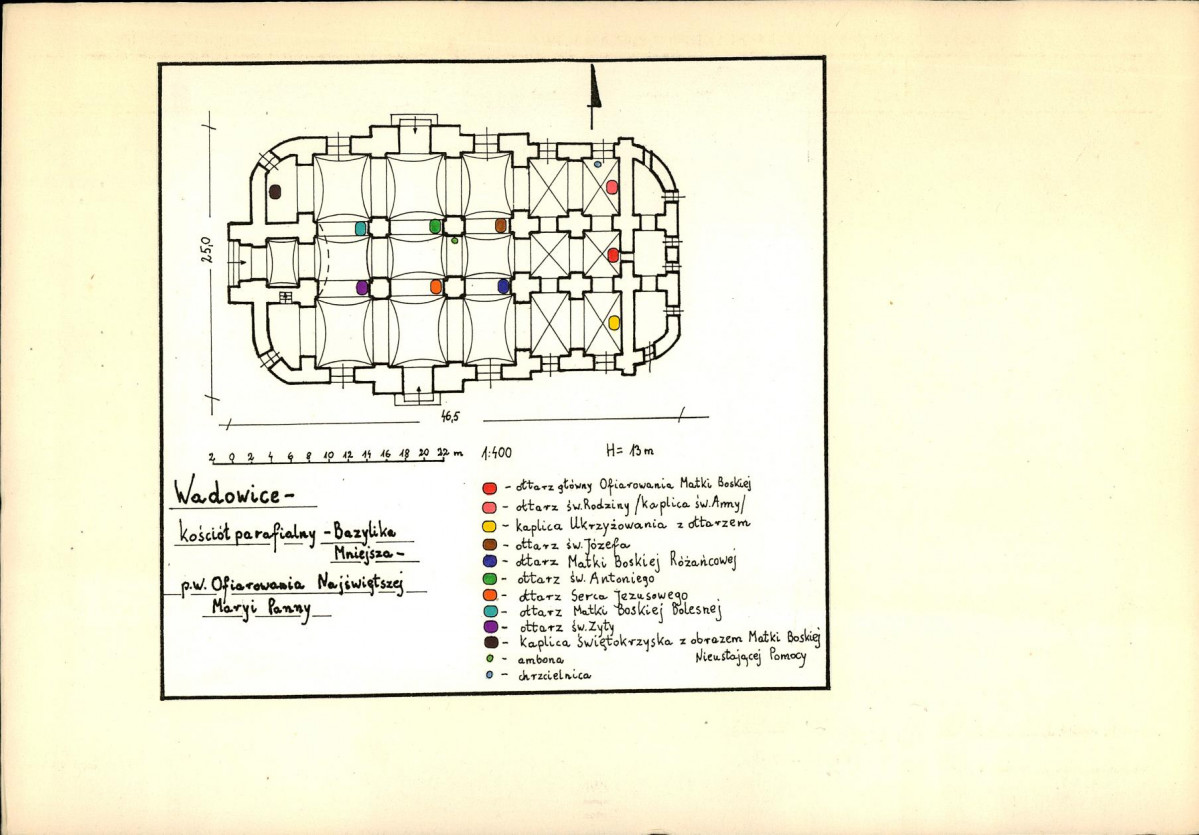 25,0
46,5
2 0 2 4 6 8 10 12 14 16 18 20 22 m 1:400 H= 13 m
Wadowice -
kościół parafialny - Bazylika
Mniejsza -
p.w. Ofiarowania Najświętszej
Maryi Panny
- ołtarz główny Ofiarowania Matki Boskiej
- ołtarz św. Rodziny /kaplica św. Anny/
- kaplica Ukrzyżowania z ołtarzem
- ołtarz św. Józefa
- ołtarz Matki Boskiej Różańcowej
- ołtarz św. Antoniego
- ołtarz Serca Jezusowego
- ołtarz Matki Boskiej Bolesnej
- ołtarz św. Zyty
- Kaplica Świętokrzyska z obrazem Matki Boskiej
Nieustającej Pomocy
- ambona
- chrzcielnica